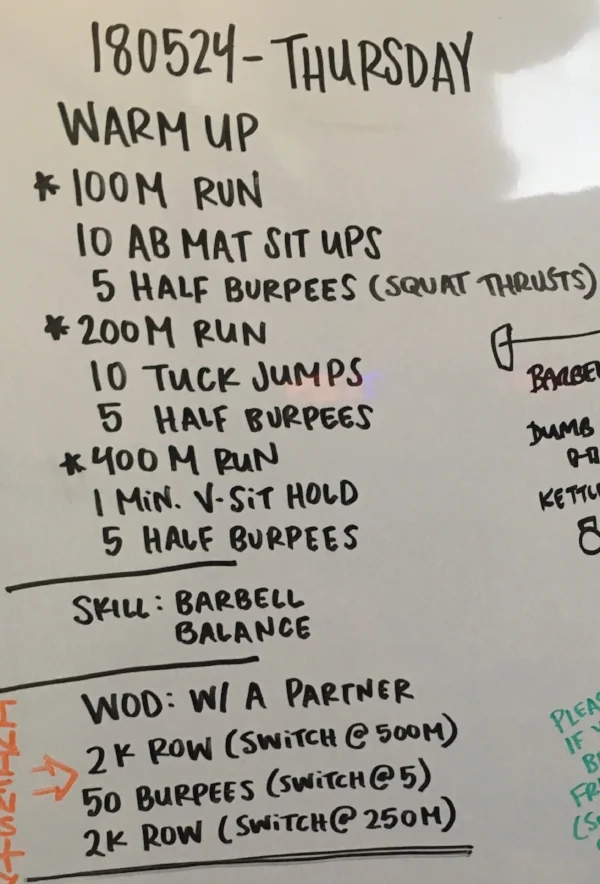 180524-THURSDAY
WARM UP
* 100M RUN
10 AB MAT SIT UPS
5 HALF BURPEES (SQUAT THRUSTS)
* 200M RUN
10 TUCK JUMPS
5 HALF BURPEES
* 400M RUN
1 MIN. V-SIT HOLD
5 HALF BURPEES
SKILL: BARBELL
BALANCE
WOD: W/ A PARTNER
2K ROW (SWITCH @ 500M)
50 BURPEES (SWITCH @ 5)
2K ROW (SWITCH @ 250M)
DUMB
IF